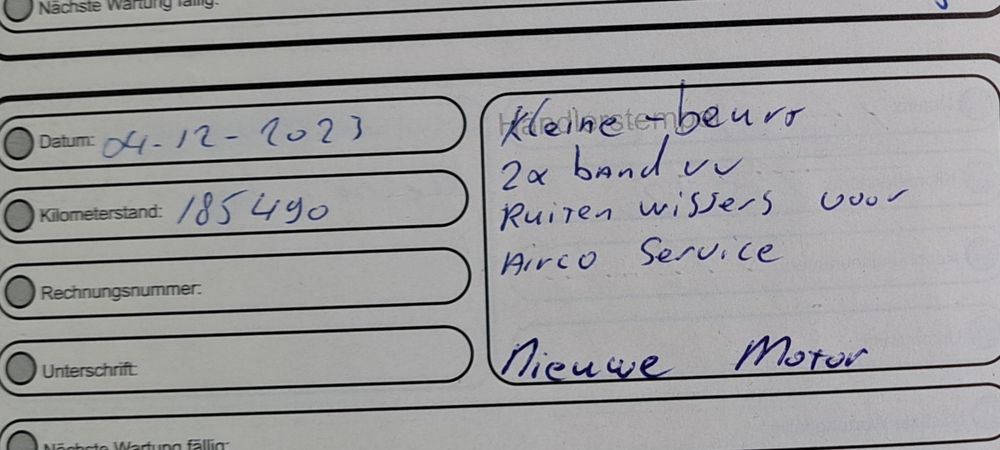 Nächste Wartung fällig:
Datum: 04-12-2023
Kilometerstand: 185490
Rechnungsnummer:
Unterschrift:
Händlerstempel
Kleine-beurt
2x band vv
Ruiten wissers voor
Airco Service
Nieuwe Motor
Nächste Wartung fällig: